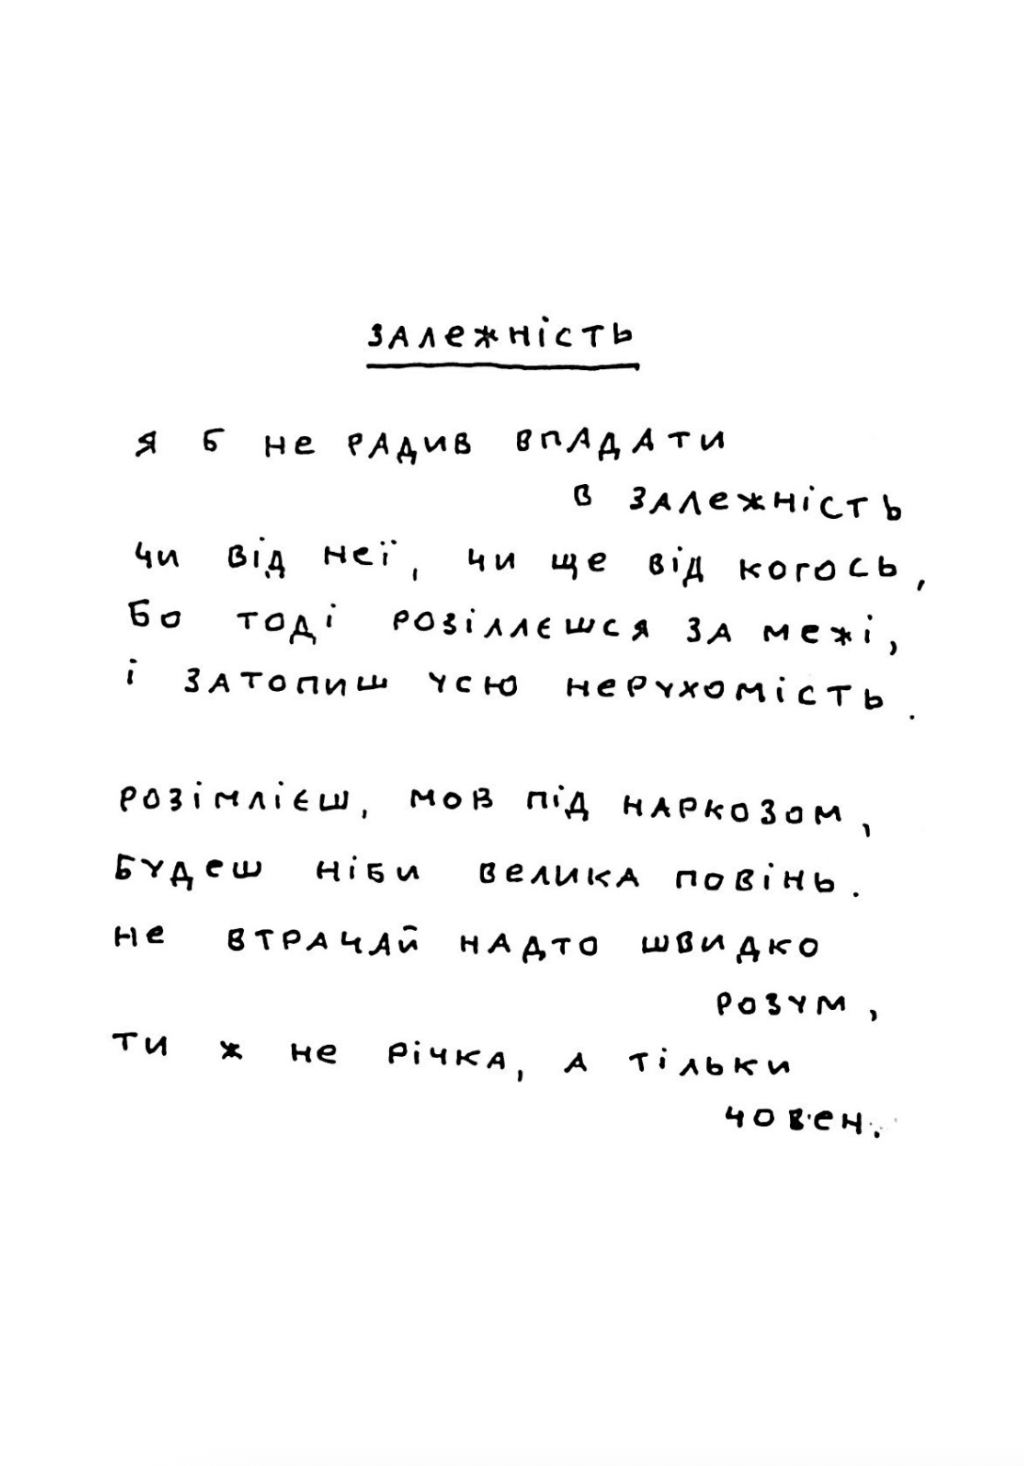 залежність
я б не радив впадати
в залежність
чи від неї, чи ще від когось,
бо тоді розіллєшся за межі,
і затопиш усю нерухомість.
розімлієш, мов під наркозом,
будеш ніби велика повінь.
не втрачай надто швидко
розум,
ти ж не річка, а тільки
човен.